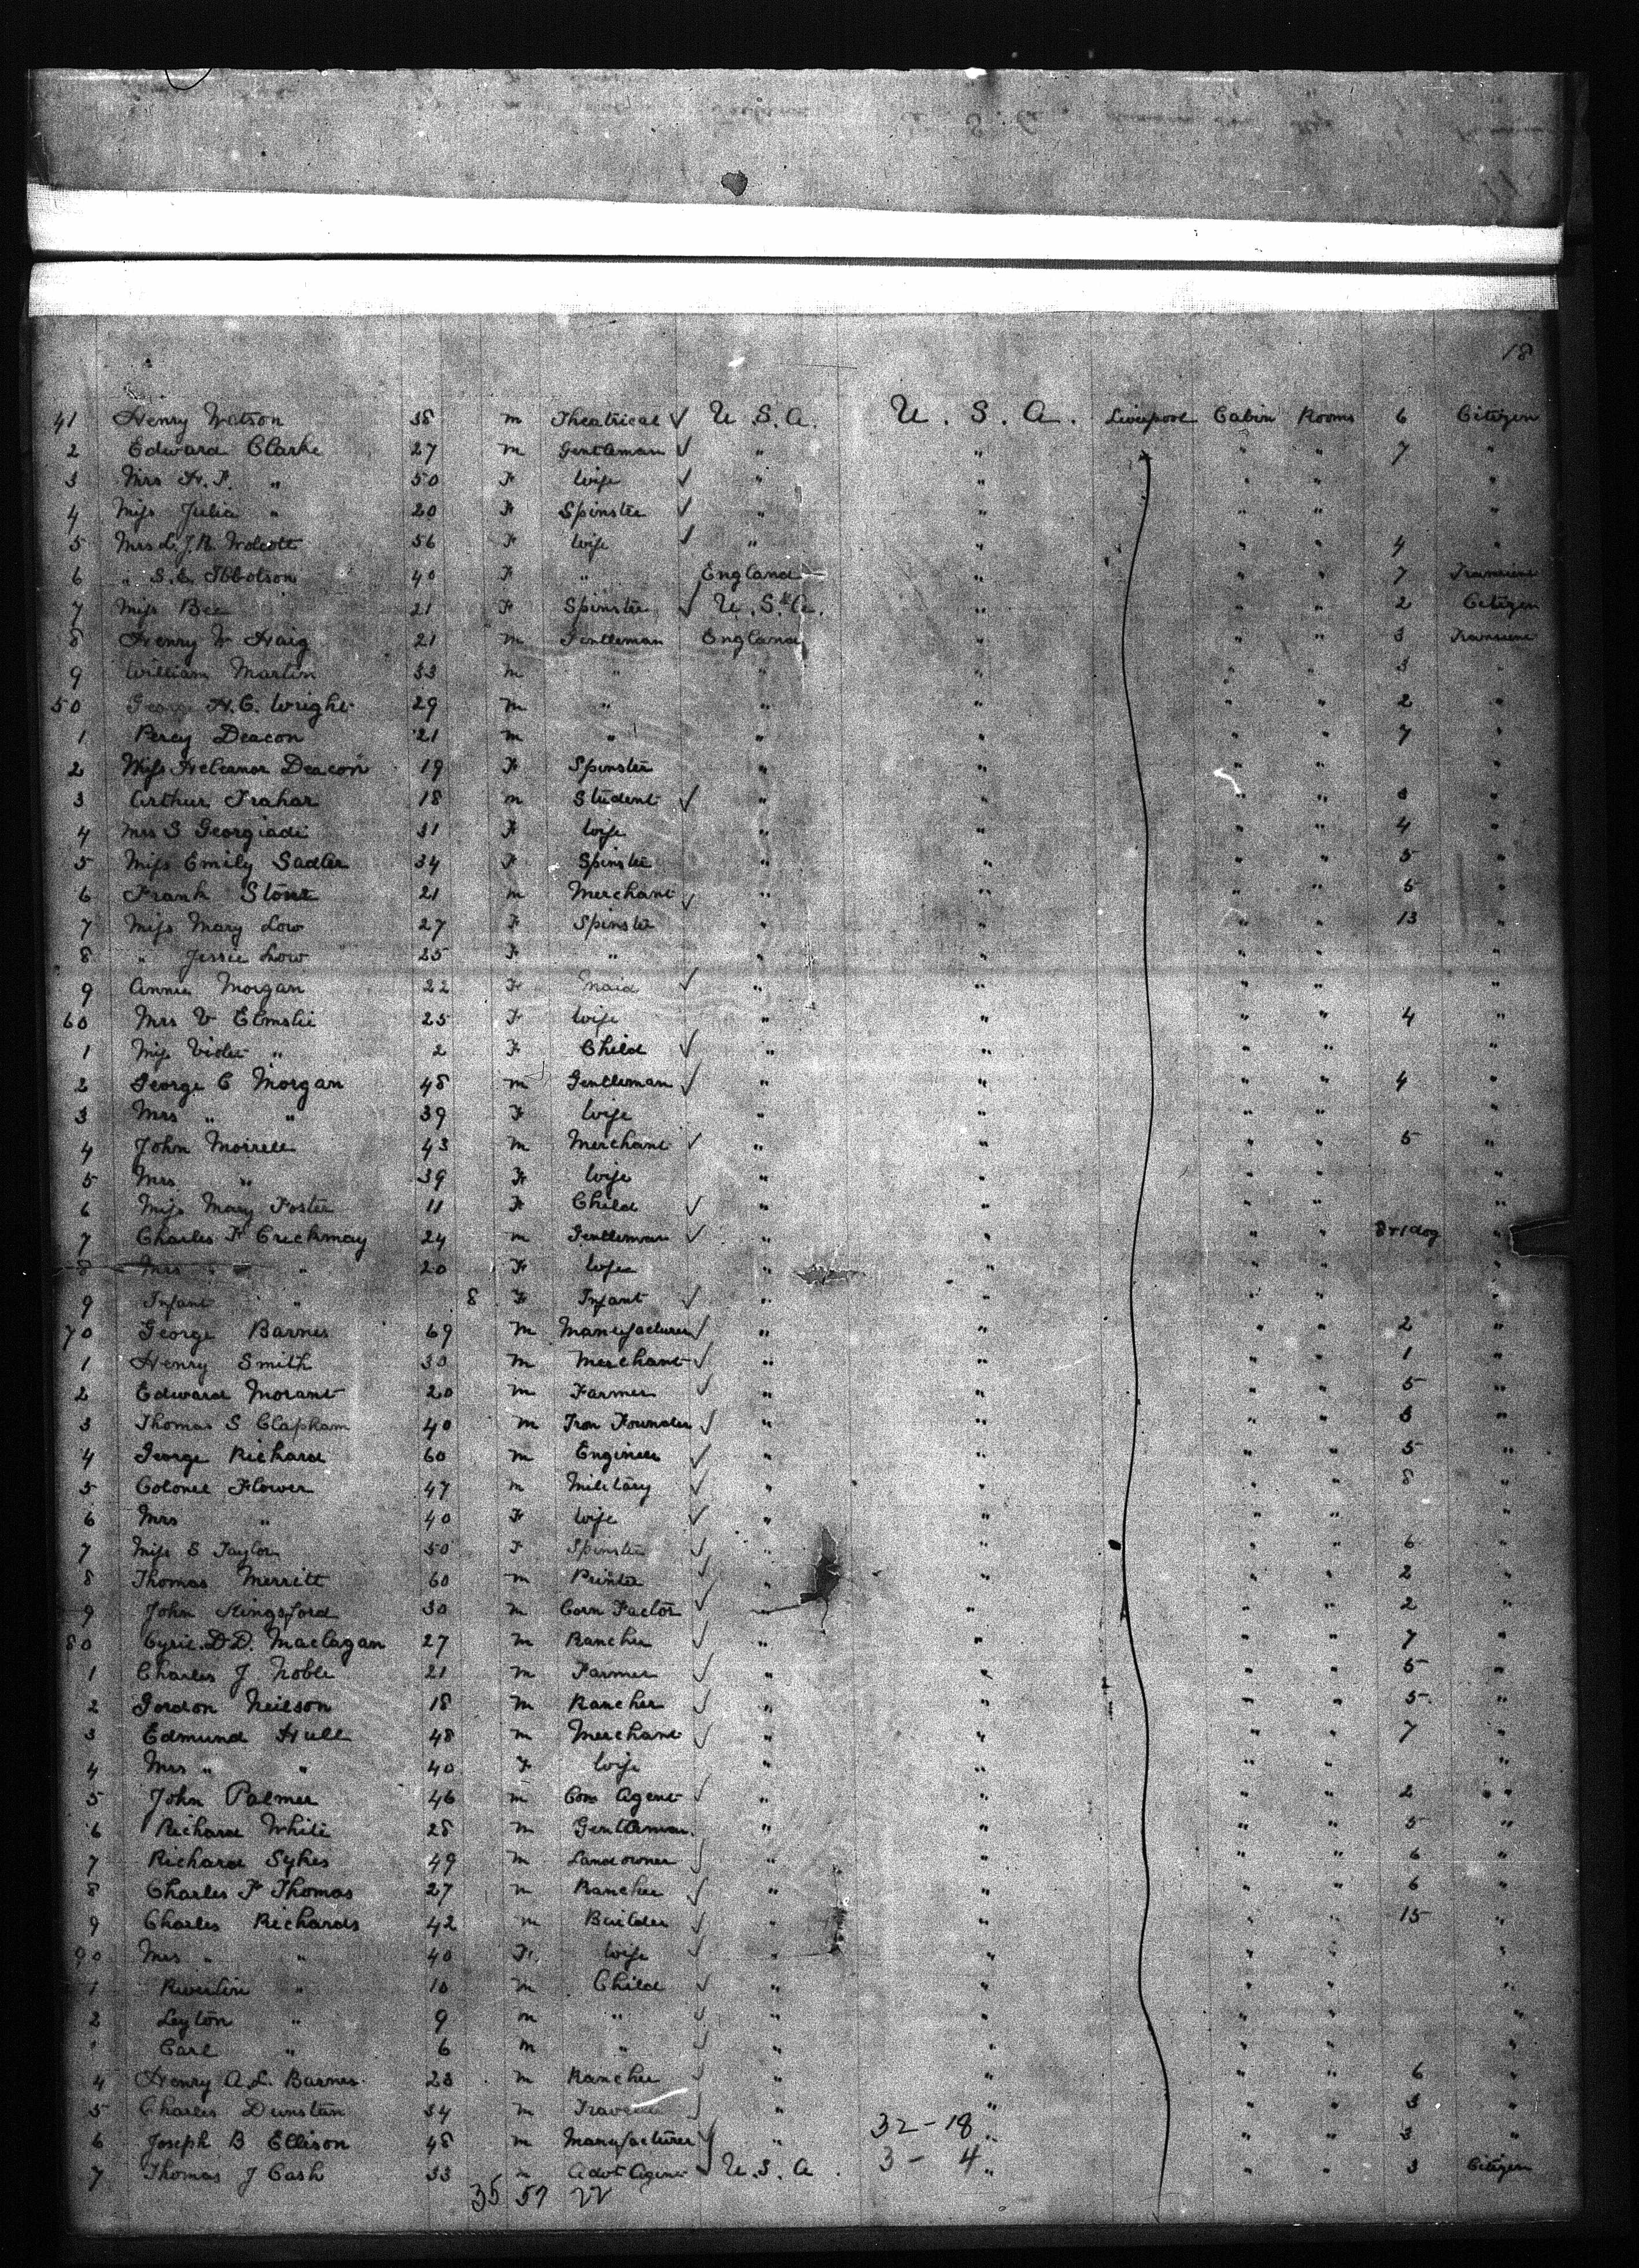 18
41 Henry Watson 38 m Theatrical ✓ U.S.A. U. S. A. Liverpool Cabin Rooms 6 Citizen
2 Edward Clarke 27 m Gentleman ✓ " " " " 7 "
3 Mrs H. P. " 50 F Wife ✓ " " " " "
4 Miss Julia " 20 F Spinster ✓ " " " " "
5 Mrs L. J. N. Wolcott 56 F Wife ✓ " " " " 4 "
6 " S. E. Ibbotson 40 F " England " " " 7 Transient
7 Miss Bee 21 F Spinster ✓ U. S. A. " " " 2 Citizen
8 Henry W Haig 21 m Gentleman England " " " 3 Transient
9 William Martin 33 m " " " " " 3 "
50 George H. C. Wright 29 m " " " " " 2 "
1 Percy Deacon 21 m " " " " " 7 "
2 Miss Heleanor Deacon 19 F Spinster " " " " "
3 Arthur Trahar 18 m Student ✓ " " " " "
4 Mrs S Georgiadi 31 F Wife " " " " 4 "
5 Miss Emily Sadler 34 F Spinster " " " " 5 "
6 Frank Stone 21 m Merchant ✓ " " " " 5 "
7 Miss Mary Low 27 F Spinster " " " " 13 "
8 " Jessie Low 25 F " " " " " "
9 Annie Morgan 22 F Maid ✓ " " " " "
60 Mrs V Elmslie 25 F Wife " " " " 4 "
1 Miss Violet " 2 F Child ✓ " " " " "
2 George C Morgan 48 m Gentleman ✓ " " " " 4 "
3 Mrs " " 39 F Wife " " " " "
4 John Morrell 43 m Merchant ✓ " " " " 5 "
5 Mrs " 39 F Wife " " " " "
6 Miss Mary Foster 11 F Child ✓ " " " " "
7 Charles F Crickmay 24 m Gentleman ✓ " " " " 8+1 dog "
8 Mrs " " 20 F Wife " " " " "
9 Infant " 8 F Infant ✓ " " " " "
70 George Barnes 69 m Manufacturer ✓ " " " " 2 "
1 Henry Smith 30 m Merchant ✓ " " " " 1 "
2 Edward Morant 20 m Farmer ✓ " " " " 5 "
3 Thomas S Clapham 40 m Iron Founder ✓ " " " " 3 "
4 George Richard 60 m Engineer ✓ " " " " 5 "
5 Colonel Flower 47 m Military ✓ " " " " 8 "
6 Mrs " 40 F Wife ✓ " " " " "
7 Miss S Taylor 50 F Spinster ✓ " " " " 6 "
8 Thomas Merritt 60 m Printer ✓ " " " " 2 "
9 John Kingsford 30 m Corn Factor ✓ " " " " 2 "
80 Cyril. D D. Maclagan 27 m Rancher ✓ " " " " 7 "
1 Charles J Noble 21 m Farmer ✓ " " " " 5 "
2 Gordon Neilson 18 m Rancher ✓ " " " " 5 "
3 Edmund Hull 48 m Merchant ✓ " " " " 7 "
4 Mrs " " 40 F Wife " " " " "
5 John Palmer 46 m Com Agent ✓ " " " " 2 "
6 Richard White 28 m Gentleman " " " " 5 "
7 Richard Sykes 49 m Landowner ✓ " " " " 6 "
8 Charles F Thomas 27 m Rancher ✓ " " " " 6 "
9 Charles Richards 42 m Builder ✓ " " " " 15 "
90 Mrs " " 40 F. Wife ✓ " " " " "
1 " 10 m Child ✓ " " " " "
2 Leyton " 9 m " ✓ " " " " "
Carl " 6 m " ✓ " " " " "
4 Henry A. L. Barnes 23 m Rancher ✓ " " " " 6 "
5 Charles Dunstan 34 m ✓ " " " " 3 "
6 Joseph B Ellison 48 m Manufacturer ✓ " 32-18 " " " 3 "
7 Thomas J Cash 33 m Advt Agent ✓ U. S. A. 3- 4 " " " 3 Citizen
35 57 22